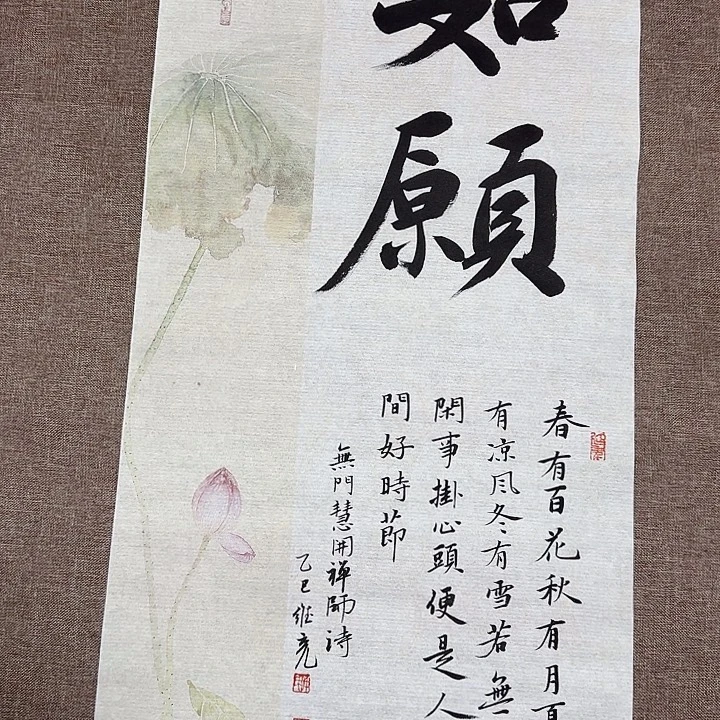 如
願
春有百花秋有月夏
有凉风冬有雪若無
閑事掛心頭便是人
間好時節
無門慧開禪師诗
乙巳维亮